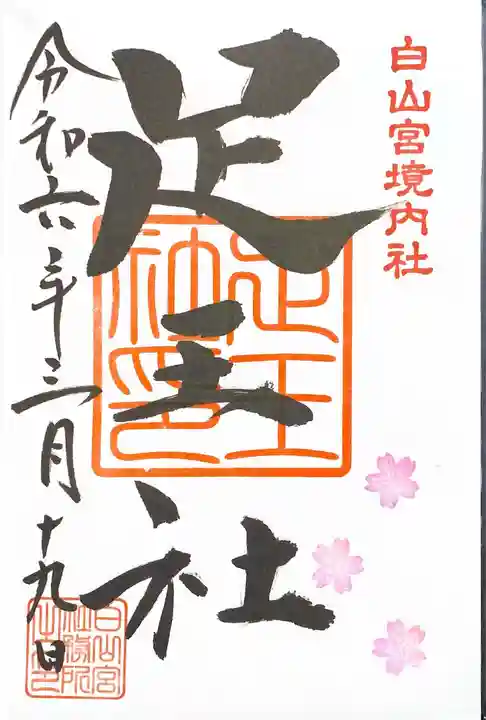 白山宮境内社
足王社
足王社印
令和六年三月十九日
白山宮社務所之印